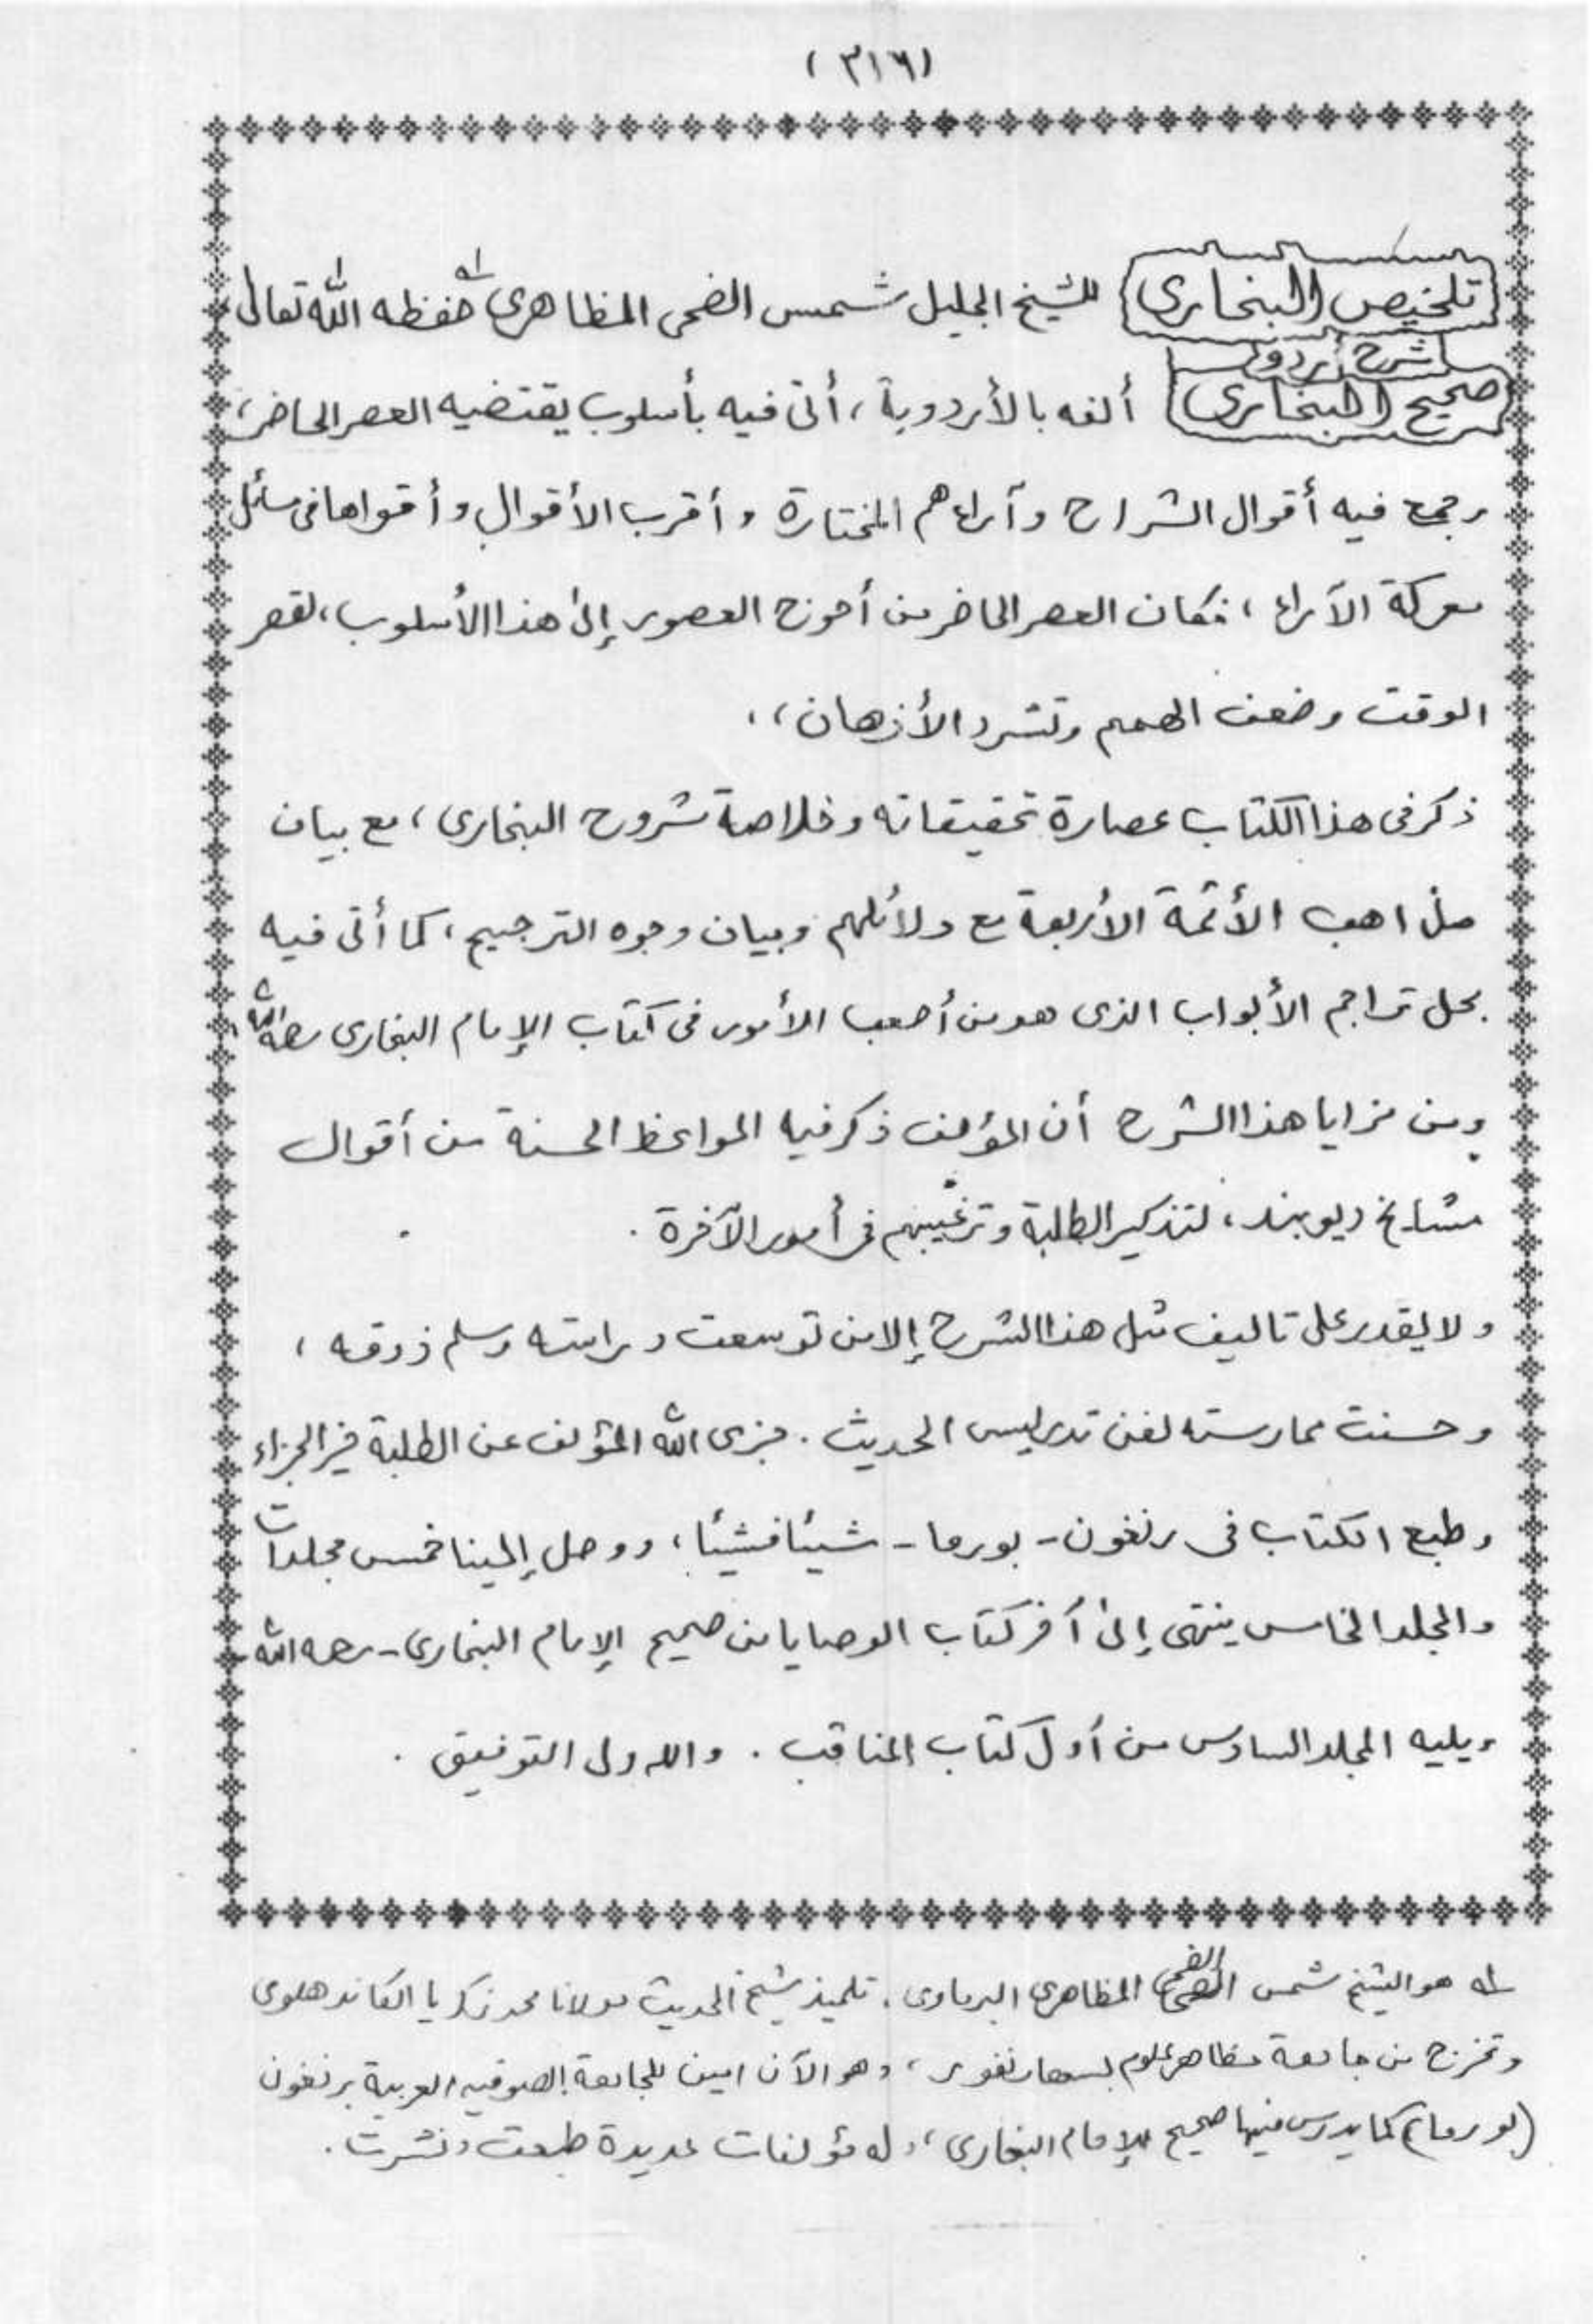 (٣١٦)
تلخيص البخاري للشيخ الجليل شمس الضحى المظاهري له حفظه الله تعالى،
شرح أردو
صحيح البخاري ألفه بالأردوية، أتى فيه بأسلوب يقتضيه العصر الحاضر،
وجمع فيه أقوال الشراح وآراءهم المختارة وأقرب الأقوال وأقواها في مسائل
معركة الآراء، فكان العصر الحاضر من أحوج العصور إلى هذا الأسلوب، لقصر
الوقت وضعف الهمم وتشرد الأذهان،،
ذكر في هذا الكتاب عصارة تحقيقاته وخلاصة شروح البخاري، مع بيان
مذاهب الأئمة الأربعة مع دلائلهم وبيان وجوه الترجيح، كما أتى فيه
بحل تراجم الأبواب الذي هو من أصعب الأمور في كتاب الإمام البخاري رحمه الله،
ومن مزايا هذا الشرح أن المؤلف ذكر فيه المواعظ الحسنة من أقوال
مشايخ ديوبند، لتذكير الطلبة وترغيبهم في أمور الآخرة.
ولا يقدر على تاليف مثل هذا الشرح إلا من توسعت دراسته وسلم ذوقه،
وحسنت ممارسته لفن تدريس الحديث. فجزى الله المؤلف عن الطلبة خير الجزاء
وطبع الكتاب في رنغون - بورما - شيئا فشيئا، ووصل إلينا خمس مجلدات
والمجلد الخامس ينتهى إلى آخر كتاب الوصايا من صحيح الإمام البخاري - رحمه الله
ويليه المجلد السادس من أول كتاب المناقب. والله ولى التوفيق.
له هو الشيخ شمس الضحى المظاهري البرماوي. تلميذ شيخ الحديث مولانا محمد زكريا الكاندهلوي
وتخرج من جامعة مظاهر علوم بسهارنفور، وهو الآن امين للجامعة الصوفيه العربية برنغون
(بورما) كما يدرس فيها صحيح الإمام البخاري، وله مؤلفات عديدة طبعت ونشرت.